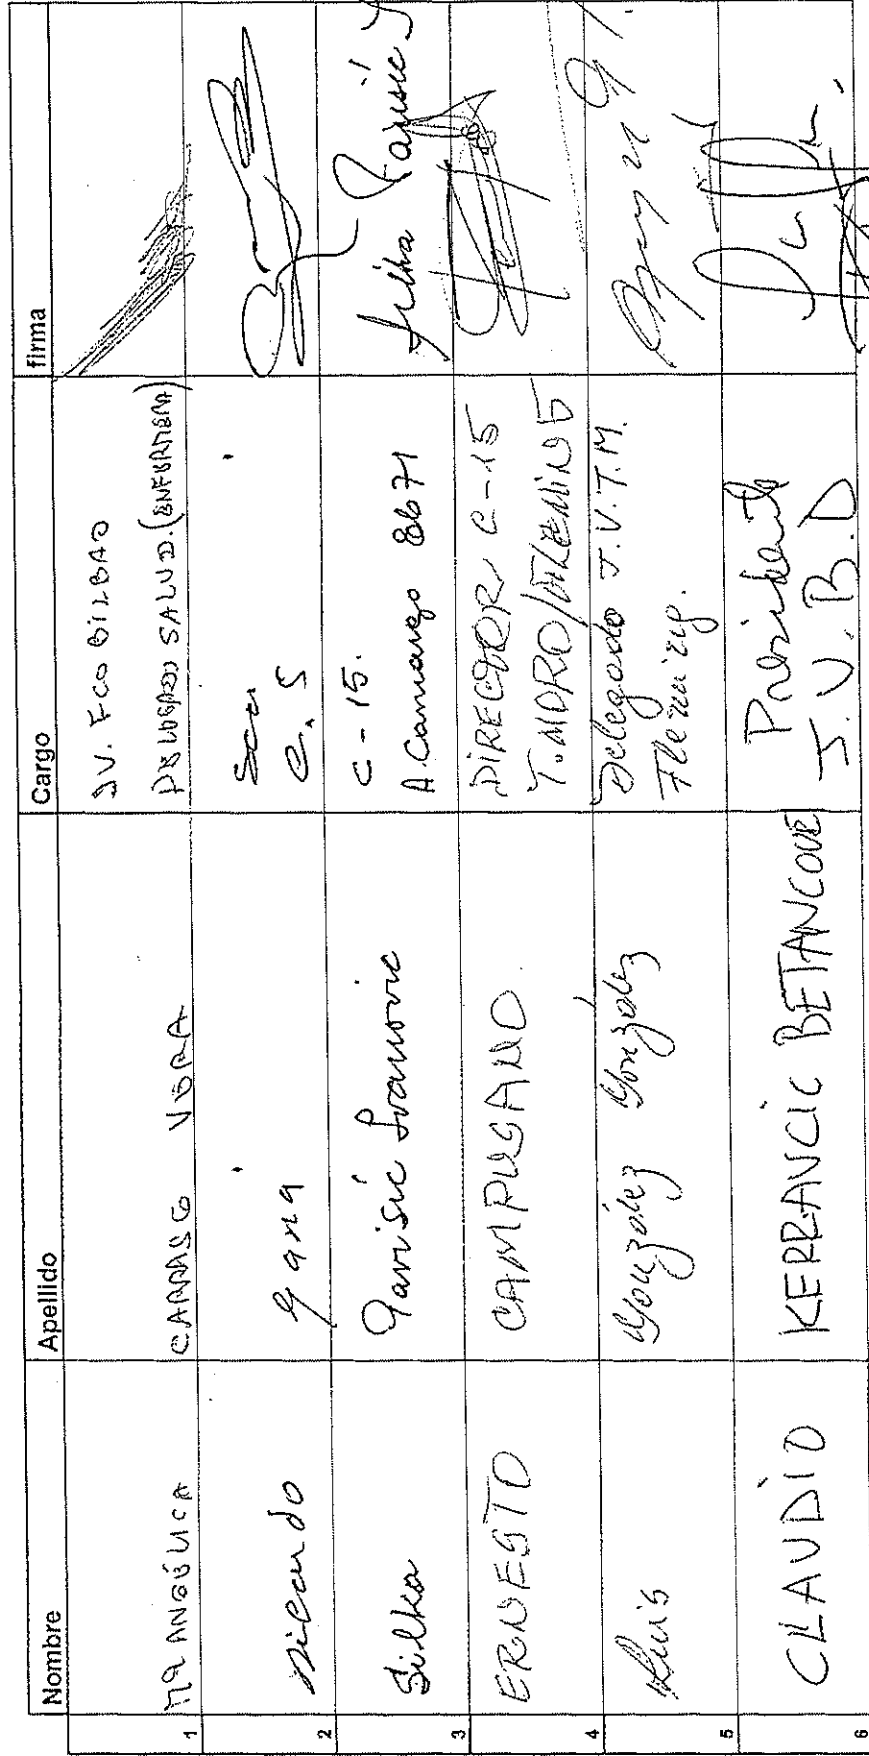 Nombre Apellido Cargo firma
1 Mª ANGÉLICA CARRASCO VERA JV. FCO BILBAO
DELEGADO SALUD. (ENFERMERA)
2 Ricardo Gana
C.S
3 Silka Pavisic Ivanovic C-15.
A. Camargo 8671
Silka Pavisic I
4 ERNESTO CAMPUSANO. DIRECTOR C-15
T. MORO/FLEMING
5 Luis González González Delegado J.V.T.M.
Fleming.
6 CLAUDIO KERRAVCIC BETANCOUR Presidente
J.V.B.D